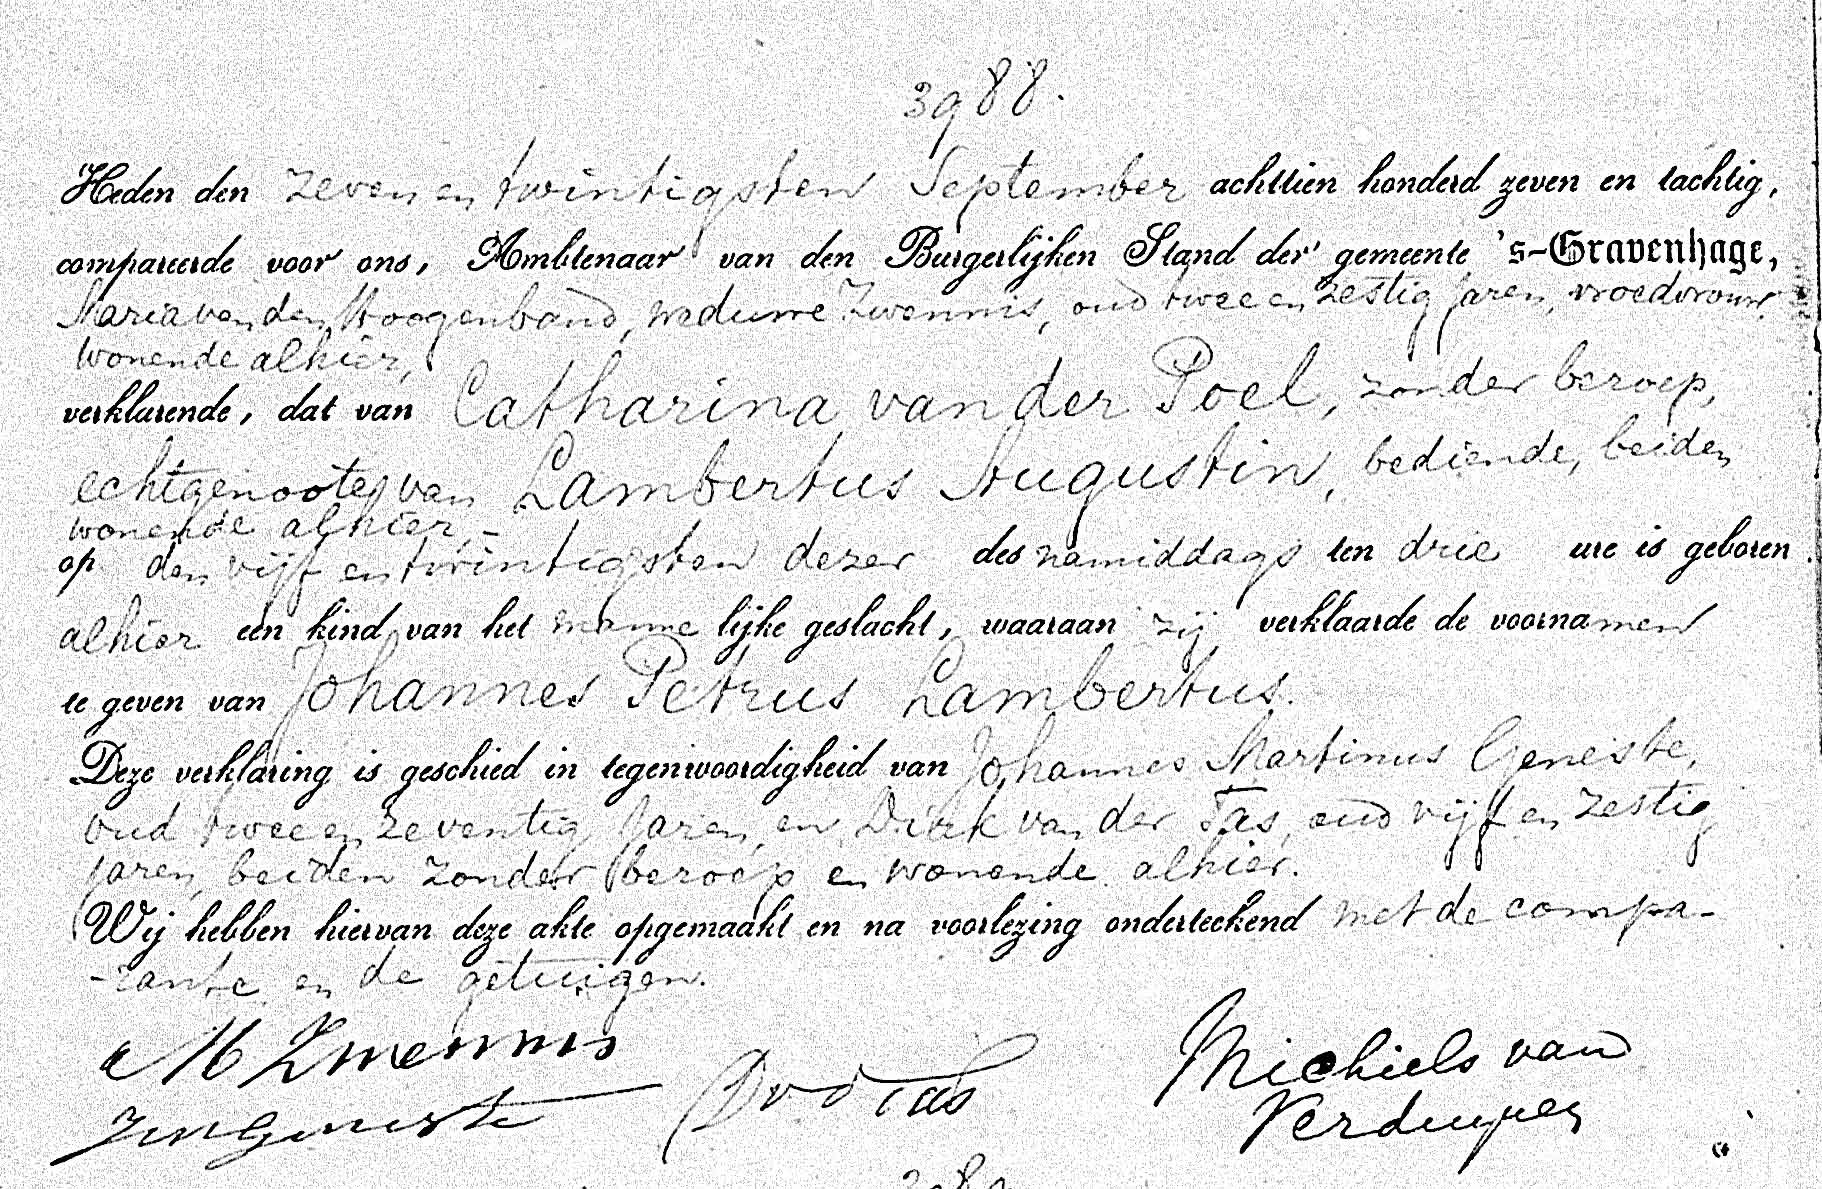 3988.
Heden den zeven en twintigsten September achttien honderd zeven en tachtig,
compareerde voor ons, Ambtenaar van den Burgerlijken Stand der gemeente 's-Gravenhage,
Maria van den Hoogenband, weduwe Zwennis, oud twee en zestig jaren, vroedvrouw,
wonende alhier,
verklarende, dat van Catharina van der Poel, zonder beroep,
echtgenoote van Lambertus Augustin, bediende, beiden
wonende alhier,-
op den vijf en twintigsten dezer des namiddags ten drie ure is geboren
alhier een kind van het mannelijke geslacht, waaraan zij verklaarde de voornamen
te geven van Johannes Petrus Lambertus.
Deze verklaring is geschied in tegenwoordigheid van Johannes Martinus Geneste,
oud twee en zeventig jaren, en Dirk van der Tas, oud vijf en zestig
jaren, beiden zonder beroep en wonende alhier.
Wij hebben hiervan deze akte opgemaakt en na voorlezing onderteekend met de compa-
-rante en de getuigen.
M Zwennis
JM Geneste
D v d Tas
Michiels van
Verduynen